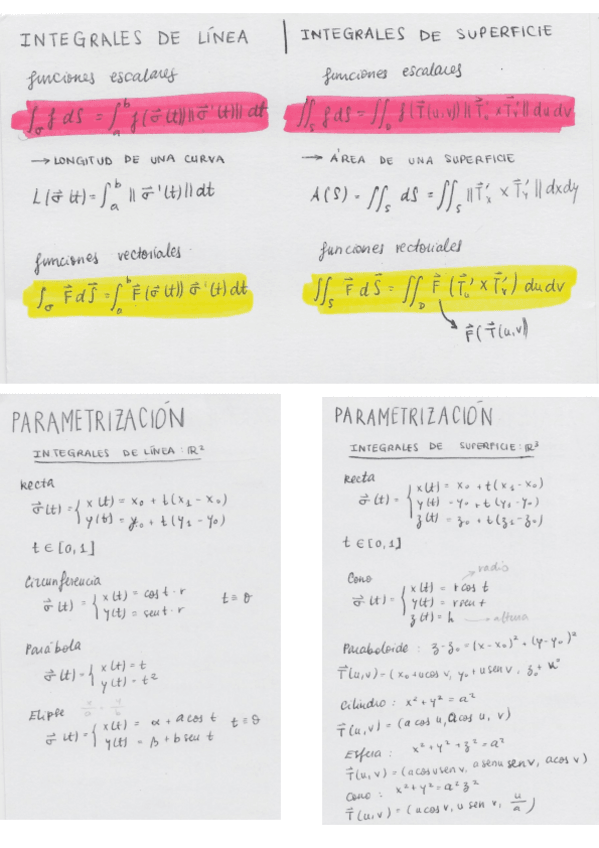 INTEGRALES DE LÍNEA
funciones escalares
∫_σ f dS = ∫_a^b f(σ⃗(t)) ||σ⃗'(t)|| dt
→ LONGITUD DE UNA CURVA
L(σ⃗(t)) = ∫_a^b ||σ⃗'(t)|| dt
funciones vectoriales
∫_σ F⃗ dS⃗ = ∫_a^b F⃗(σ⃗(t)) σ⃗'(t) dt
INTEGRALES DE SUPERFICIE
funciones escalares
∬_S f dS = ∬_D f(T⃗(u,v)) ||T⃗'_u × T⃗'_v|| du dv
→ ÁREA DE UNA SUPERFICIE
A(S) = ∬_S dS = ∬_S ||T⃗'_x × T⃗'_y|| dxdy
funciones vectoriales
∬_S F⃗ dS⃗ = ∬_D F⃗ (T⃗'_u × T⃗'_v) du dv
F⃗(T⃗(u,v))
PARAMETRIZACIÓN
INTEGRALES DE LÍNEA: ℝ²
Recta
σ⃗(t) = { x(t) = x₀ + t(x₁ - x₀)
y(t) = y₀ + t(y₁ - y₀)
t ∈ [0,1]
Circunferencia
σ⃗(t) = { x(t) = cos t · r
y(t) = sen t · r t ≡ θ
Parábola
σ⃗(t) = { x(t) = t
y(t) = t²
Elipse x/a = y/b
σ⃗(t) = { x(t) = α + a cos t t ≡ θ
y(t) = β + b sen t
PARAMETRIZACIÓN
INTEGRALES DE SUPERFICIE: ℝ³
Recta
σ⃗(t) = { x(t) = x₀ + t(x₁ - x₀)
y(t) = y₀ + t(y₁ - y₀)
z(t) = z₀ + t(z₁ - z₀)
t ∈ [0,1]
Cono → radio
σ⃗(t) = { x(t) = r cos t
y(t) = r sen t
z(t) = h → altura
Paraboloide: z - z₀ = (x - x₀)² + (y - y₀)²
T⃗(u,v) = (x₀ + u cos v, y₀ + u sen v, z₀ + u²
Cilindro: x² + y² = a²
T⃗(u,v) = (a cos u, a cos u, v)
Esfera: x² + y² + z² = a²
T⃗(u,v) = (a cos u sen v, a sen u sen v, a cos v)
Cono: x² + y² = a² z²
T⃗(u,v) = (u cos v, u sen v, u/a)